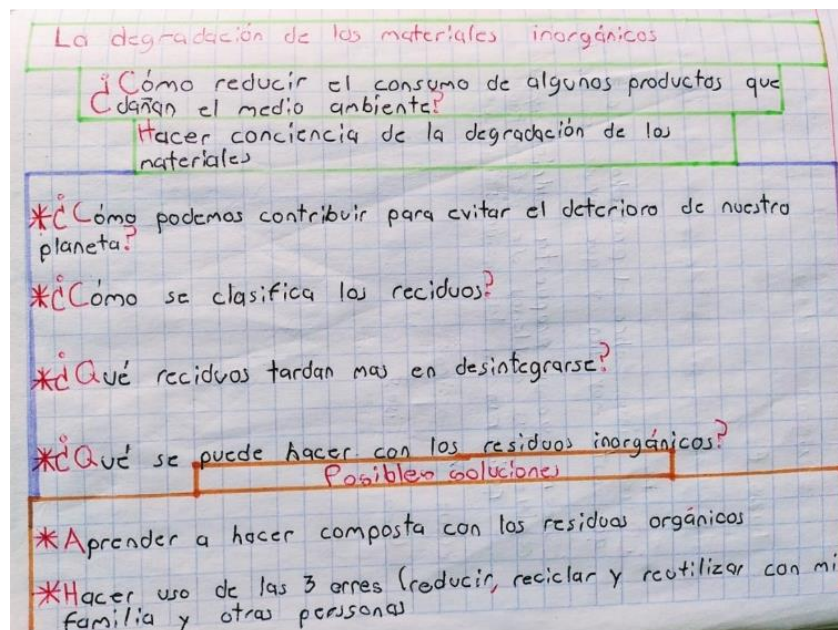 La degradación de los materiales inorgánicos
¿Cómo reducir el consumo de algunos productos que
dañan el medio ambiente?
Hacer conciencia de la degradación de los
materiales
*¿Cómo podemos contribuir para evitar el deterioro de nuestro
planeta?
*¿Cómo se clasifica los reciduos?
*¿Qué reciduos tardan mas en desintegrarse?
*¿Qué se puede hacer con los residuos inorgánicos?
Posibles soluciones
*Aprender a hacer composta con los residuos orgánicos
*Hacer uso de las 3 erres (reducir, reciclar y reutilizar con mi
familia y otras personas